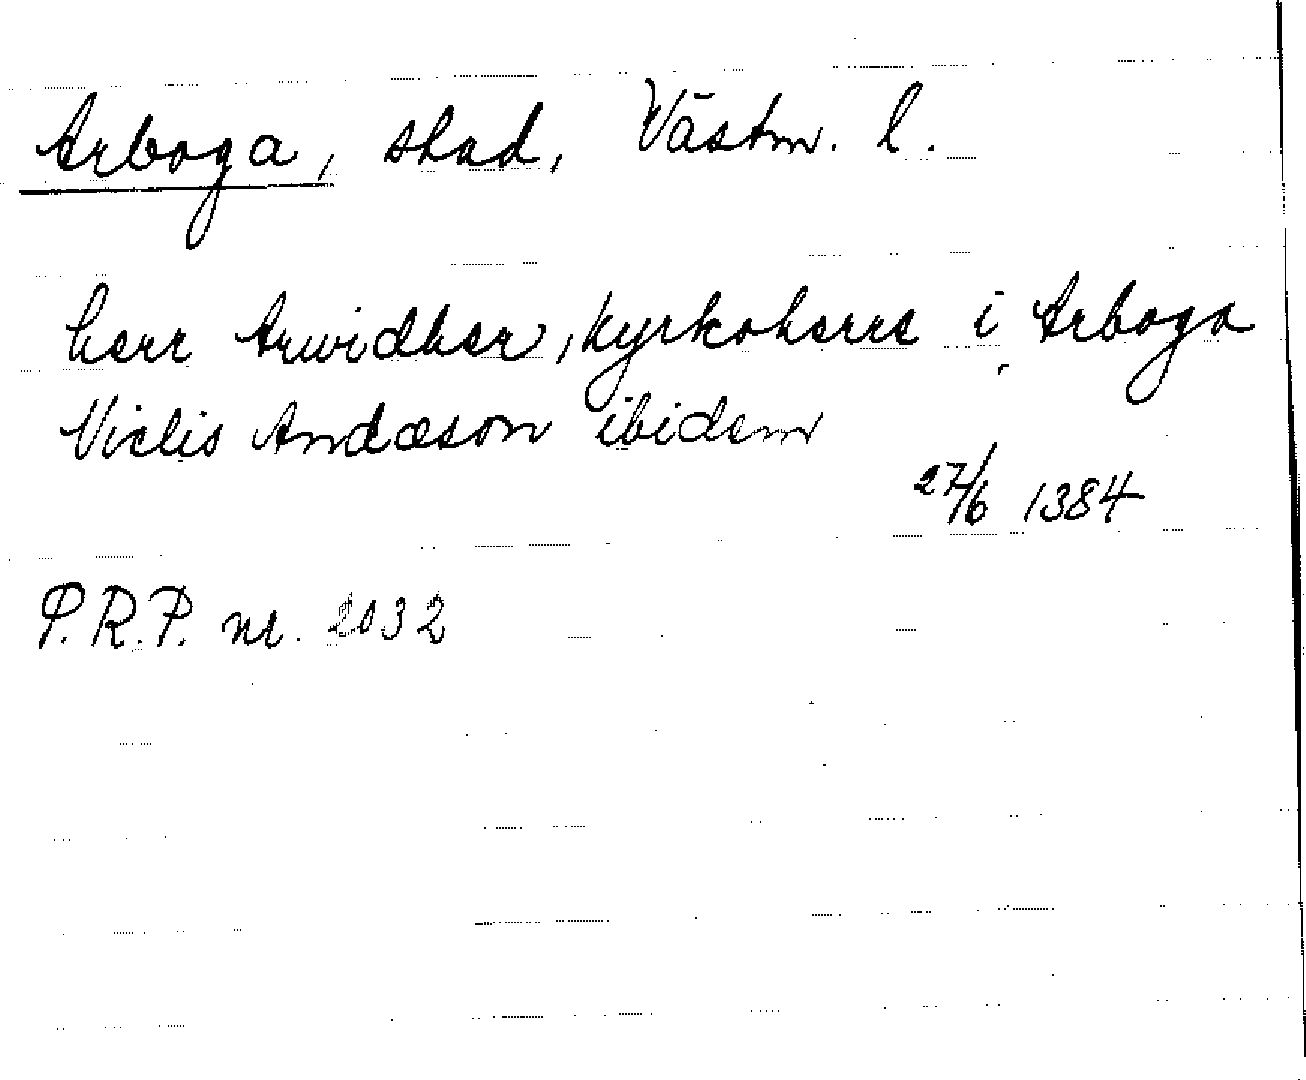 Arboga, stad, Västm. l.
herr Arwidher, kyrkoherre i Arboga
Niclis Andæson ibidem
27/6 1384
P.R.P. nr. 2032